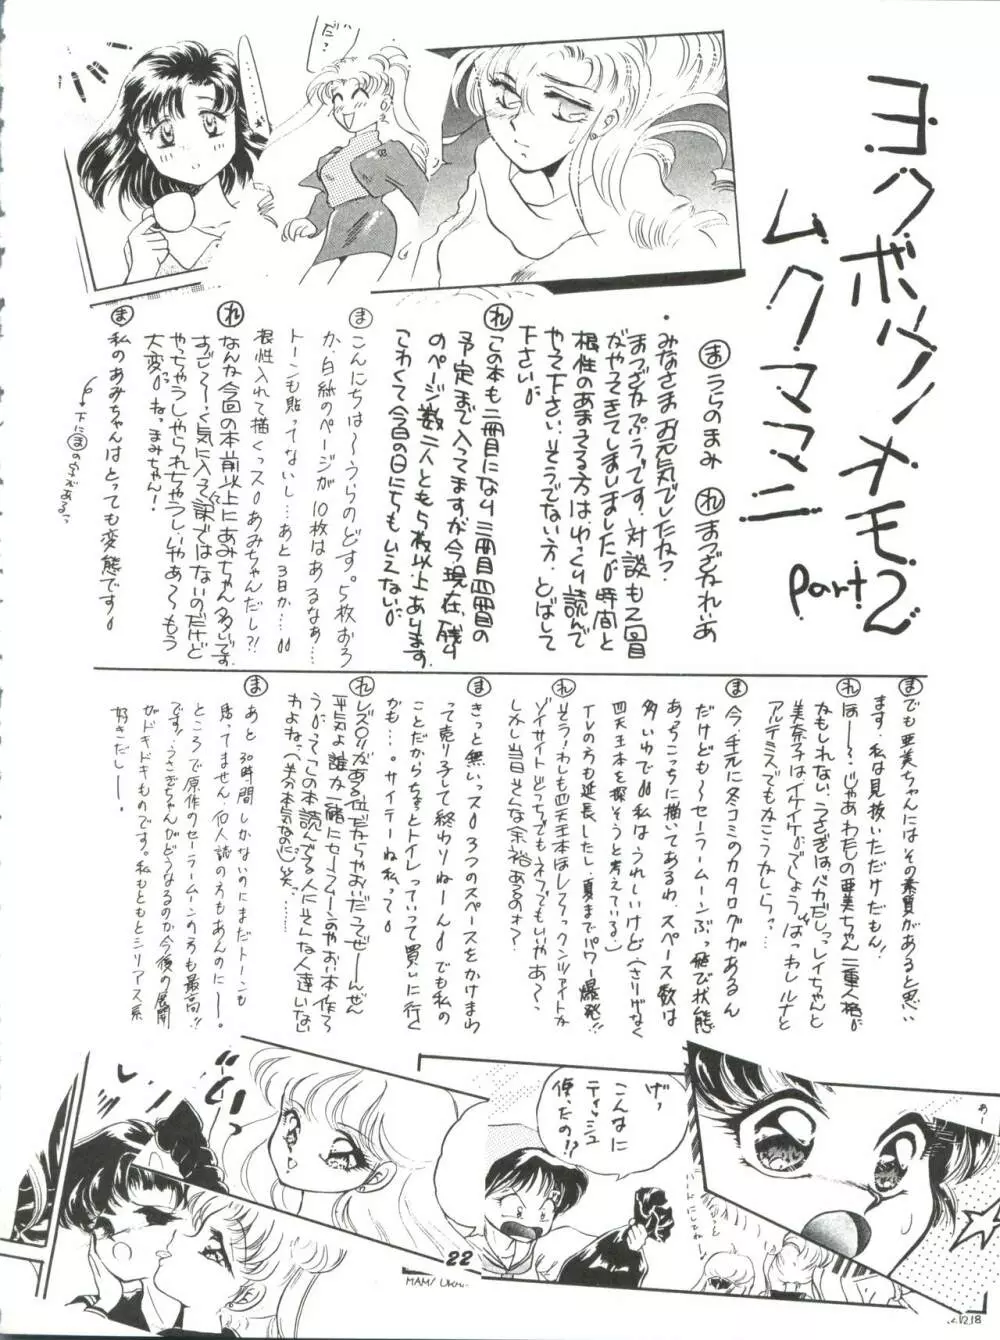 ヨクボウノオモ
ムクママニ
Part 2
だ?
・・・・・
まうらのまみ れまつざわれいあ
みなさまお元気でしたね?
まつざわぷぅです、対談も2回目
がやってきてしまいました。時間と
根性のあまってる方はゆっくり読んで
やって下さい、そうでない方、とばして
下さい
れこの本も二冊目になり三冊目四冊目の
予定まで入ってますが今、現在、残り
のページ数二人とも5枚以上あります。
こわくて今日の日にちもいえない
まこんにちは〜うらのどす。5枚おろ
か、白紙のページが10枚はあるなぁ…
トーンも貼ってないし…あと3日か…
根性入れて描くっス!あみちゃんだし?!
れなんか今回の本前以上にあみちゃん多いです
すご〜〜く気に入って訳ではないのだけど
やっちゃうしやられちゃうし、いやあ〜もう
大変 ねっまみちゃん!
ま私のあみちゃんはとっても変態です
下にまの字がある。
までも亜美ちゃんにはその素質があると思い
ます、私は見抜いただけだもん!
れほぉ〜〜、じゃあわたしの亜美ちゃん二重人格
なもしれない、うさぎはバカだしっレイちゃんと
美奈子は、イケイケでしょうばっわしルナと
アルテミスでもかこうかしらっ…
ま今、手元に冬コミのカタログがあるん
だけども〜セーラームーンぶっ飛び状態
あっちこっちに描いてあるわ、スペース数は
多いわで私はうれしいけど(さりげなく
四天王本を探そうと考えている)
T.V.の方も延長したし、夏までパワー爆発!!
れそう!わしも四天王本ほしくてっクンツァイトか
ゾイサイトどっちでもネフでもいいやあ〜、
しかし当日そんな余裕あるのか?
まきっと無いっス 3つのスペースをかけまわ
って売り子して終わりねーん でも私の
ことだからちょっとトイレっていって買いに行く
かも…。サイテーね私って
れレズ○○がある位だからやおいだってぜーんぜん
平気よ誰か一緒にセーラームーンのやおい本作ろ
うって この本読んでる人にそんな人達いない
わよねっ(半分本気なのに)笑っ……
まあと30時間しかないのにまだトーンも
貼ってません、個人誌の方もあんのにー。
ところで原作のセーラームーンの方も最高!!
です!うさぎちゃんがどうなるのか今後の展開
がドキドキものです。私もともとシリアス系
好きだしー。
げっ
こんなに
ティッシュ
使ったの!?
あー
ハードにしてね
22
MAMI URA
12.18